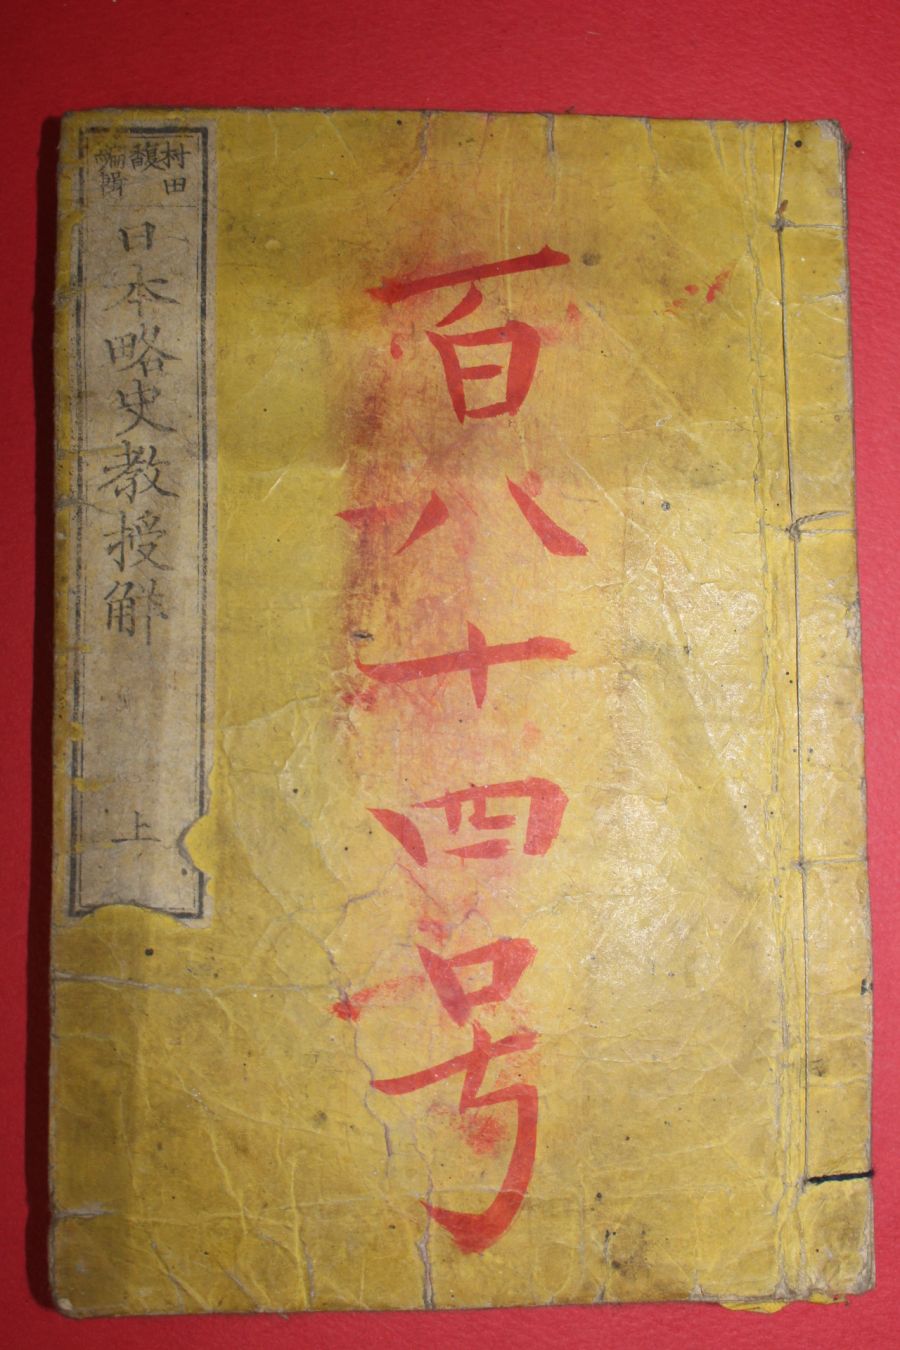 百八十四号
村田
馥
編輯
日本略史教授解
上